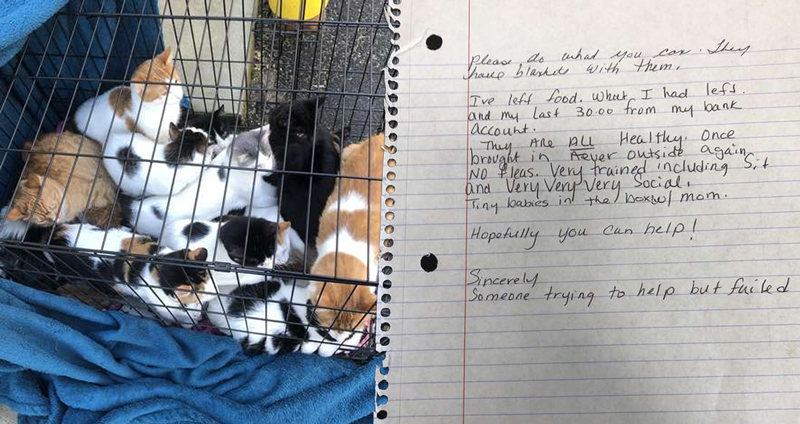 please do what you can. They
have blankets with them.
I've left food. What I had left.
and my last 30.00 from my bank
account.
They Are ALL Healthy. Once
brought in never outside again
NO fleas. Very trained including Sit
and Very Very Very Social.
Tiny babies in the box w/ mom.
Hopefully you can help!
Sincerely
Someone trying to help but failed